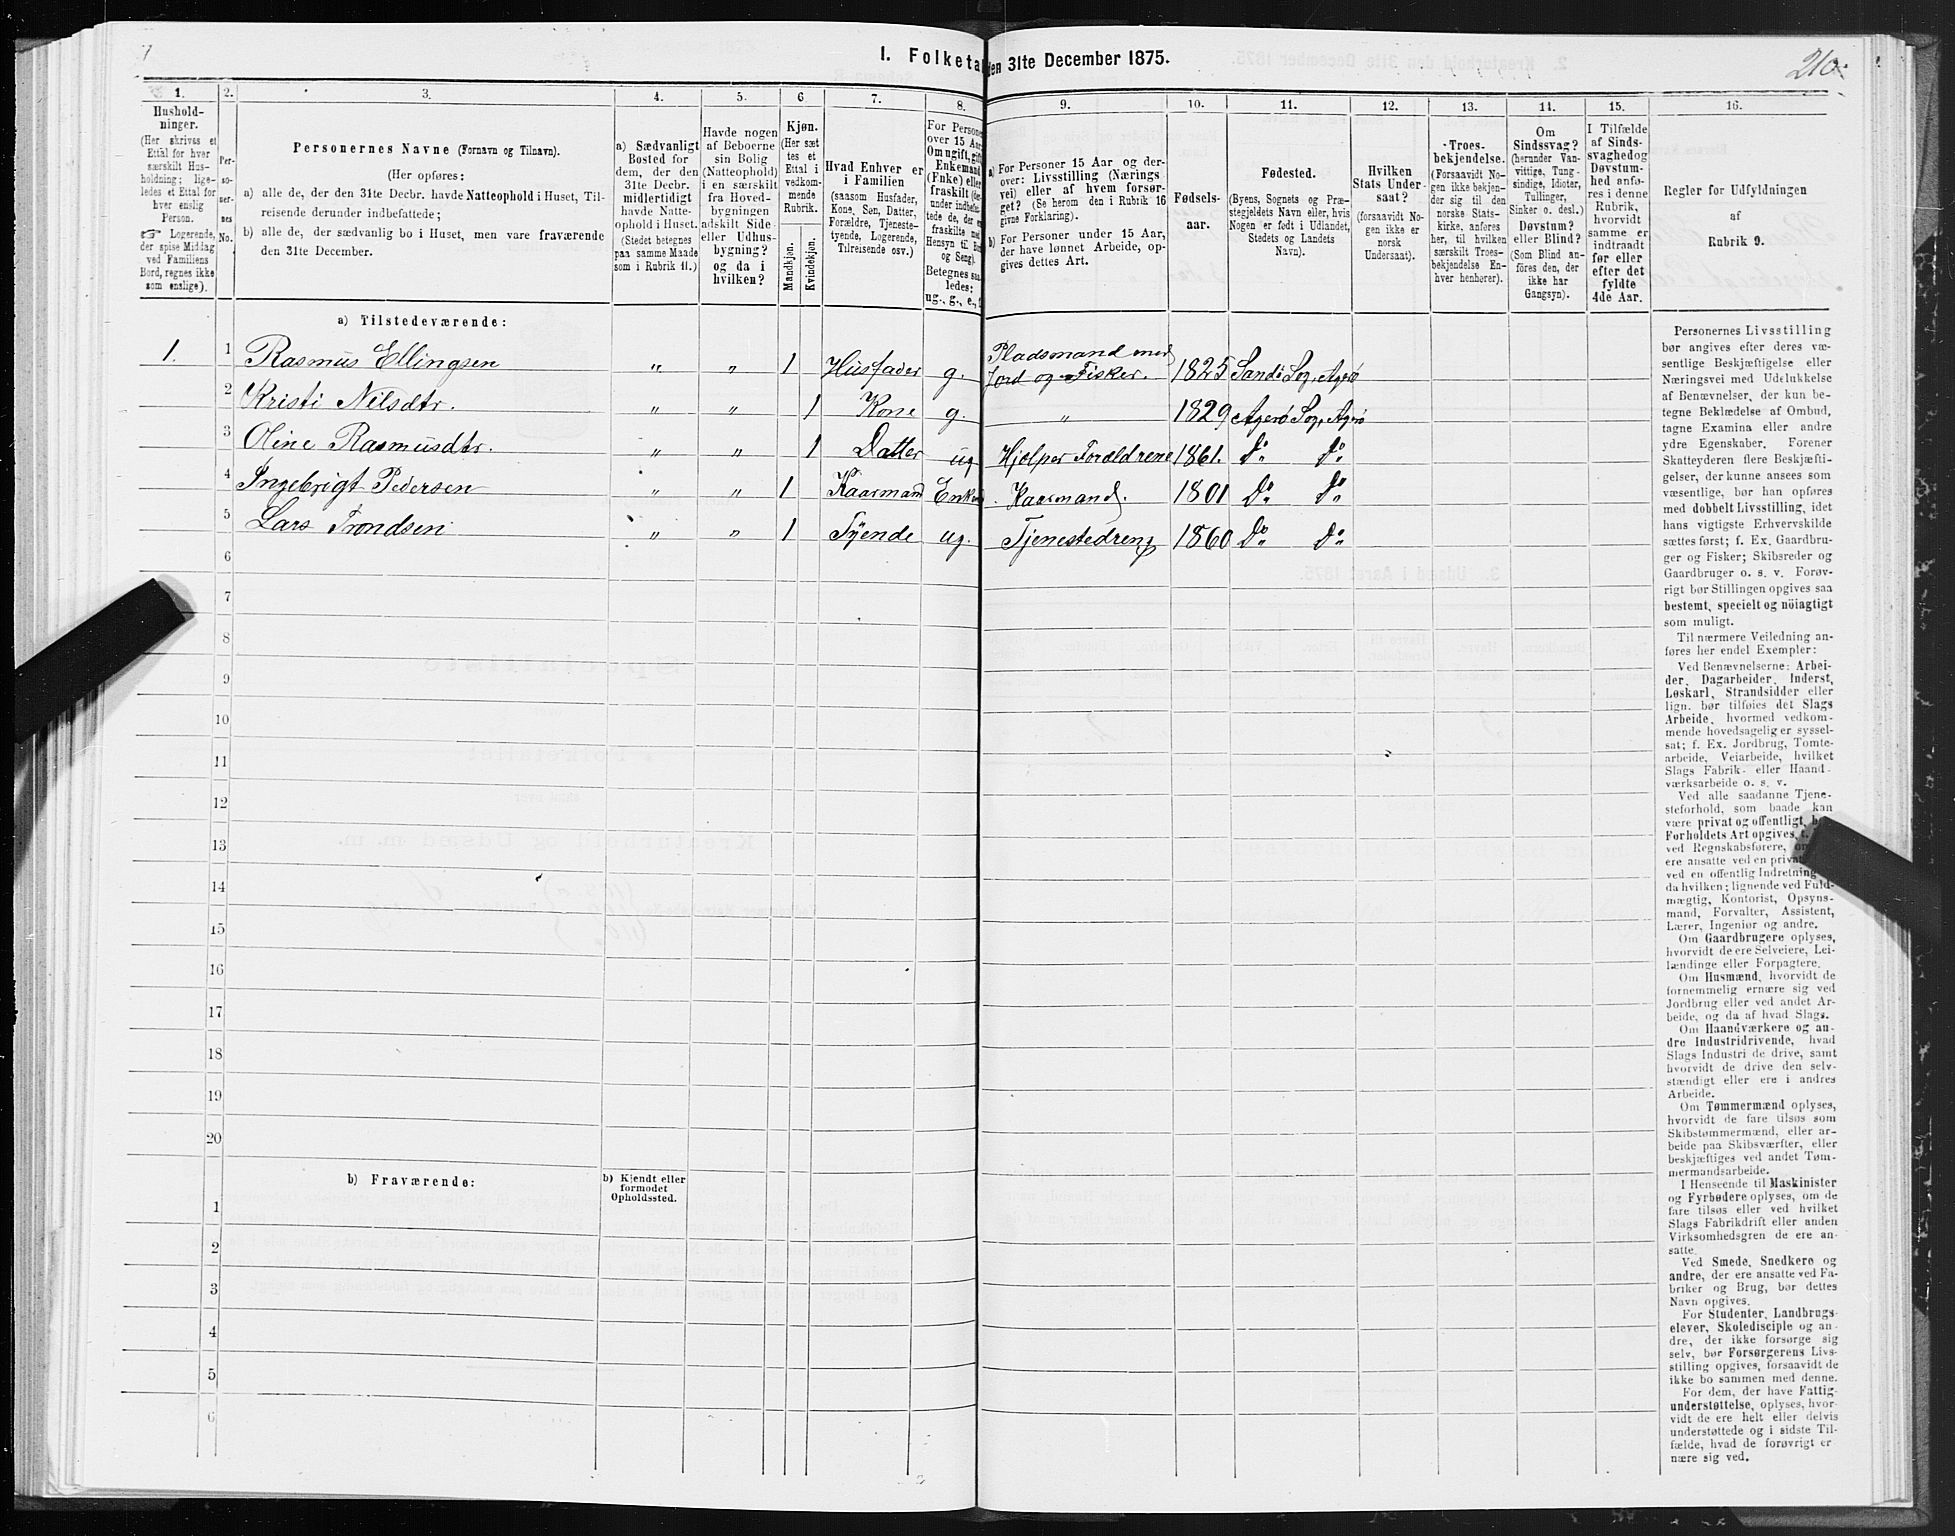 I. Folketal den 31te December 1875.
210.
1.
Hushold-
ninger.
(Her skrives et
Ettal for hver
særskilt Hus-
holdning; lige-
ledes et Ettal for
hver enslig
Person.
☞ Logerende,
der spise Middag
ved Familiens
Bord, regnes ikke
som enslige).
2.
Per-
so-
ner-
nes
No.
3.
Personernes Navne (Fornavn og Tilnavn).
(Her opføres:
a) alle de, der den 31te Decbr. havde Natteophold i Huset, Til-
reisende derunder indbefattede;
b) alle de, der sædvanlig bo i Huset, men vare fraværende
den 31te December.
4.
a) Sædvanligt
Bosted for
dem, der den
31te Decbr.
midlertidigt
havde Natte-
ophold i Huset.
(Stedet betegnes
paa samme Maade
som i Rubrik 11.)
5.
Havde nogen
af Beboerne
sin Bolig
(Natteophold)
i en særskilt
fra Hoved-
bygningen
adskilt Side-
eller Udhus-
bygning?
og da i
hvilken?
6
Kjøn.
(Her sæt
tes et
Ettal i
vedkom-
mende
Rubrik.
Mandkjøn.
Kvindekjøn.
7.
Hvad Enhver er
i Familien
(saasom Husfader,
Kone, Søn, Datter,
Forældre, Tjeneste-
tyende, Logerende,
Tilreisende osv.)
8.
For Persone
over 15 Aar
Om ugift, gift
Enkemand
(Enke) eller
fraskilt (der-
under indbefat-
tede de, der ere
fraskilte med
Hensyn til Bord
og Seng).
Betegnes saa-
ledes:
ug., g., e.,
9.
a) For Personer 15 Aar og der-
over: Livsstilling (Nærings
vei) eller af hvem forsør-
get? (Se herom den i Rubrik 16
givne Forklaring).
b) For Personer under 15 Aar,
der have lønnet Arbeide, op-
gives dettes Art.
10.
Fødsels-
aar.
11.
Fødested.
(Byens, Sognets og Præ-
stegjeldets Navn eller, hvis
Nogen er født i Udlandet,
Stedets og Landets
Navn).
12.
Hvilken
Stats Under-
saat?
(forsaavidt No-
gen ikke er
norsk
Undersaat).
13.
Troes-
bekjendelse.
(Forsaavidt No-
gen ikke bekjen-
der sig til den
norske Stats-
kirke, anføres
her, til hvilken
særskilt Troes-
bekjendelse En-
hver henhører).
14.
Om
Sindssvag?
(herunder Van-
vittige, Tung-
sindige, Idioter,
Tullinger,
Sinker o. desl.)
Døvstum?
eller Blind?
(Som Blind an-
føres den, der
ikke har
Gangsyn).
15.
I Tilfælde
af Sinds-
svaghed og
Døvstum-
hed anfø-
res i denne
Rubrik,
hvorvidt
samme er
indtraadt
før eller
efter det
fyldte
4de Aar.
16.
Regler for Udfyldningen
af
Rubrik 9.
a) Tilstedeværende:
1. 1 Rasmus Ellingsen „ „ 1 Husfader g. Pladsmand med
Jord og Fisker. 1825 Sandø Sog, Agerø
2 Kristi Nilsdtr. „ „ 1 Kone g. „ 1829 Agerø Sog, Agerø
3 Oline Rasmusdtr. „ „ 1 Datter ug Hjelper Forældrene 1861. Do Do
4 Ingebrigt Pedersen „ „ 1 Kaarmand Enkm. Kaarmand. 1801 Do Do
5 Lars Trondsen „ „ 1 Tyende ug. Tjenestedreng 1860 Do Do
6
7
8
9
10
11
12
13
14
15
16
17
18
19
20
b) Fraværende:
b) Kjendt eller
formodet
Opholdssted.
1
2
3
4
5
6
Personernes Livsstilling
bør angives efter deres væ-
sentlige Beskjæftigelse eller
Næringsvei med Udelukkelse
af Benævnelser, der kun be-
tegne Beklædelse af Ombud,
tagne Examina eller andre
ydre Egenskaber. Forener
Skatteyderen flere Beskjæfti-
gelser, der kunne ansees som
væsentlige, bør han opføres
med dobbelt Livsstilling, idet
hans vigtigste Erhvervskilde
sættes først; f. Ex. Gaardbru-
ger og Fisker; Skibsreder og
Gaardbruger o. s. v. Forøv-
rigt bør Stillingen opgives saa
bestemt, specielt og nöiagtigt
som muligt.
Til nærmere Veiledning an-
føres her endel Exempler:
Ved Benævnelserne: Arbei-
der, Dagarbeider, Inderst,
Løskarl, Strandsidder eller
lign. bør tilføies det Slags
Arbeide, hvormed vedkom-
mende hovedsagelig er syssel-
sat; f. Ex. Jordbrug, Tomte-
arbeide, Veiarbeide, hvilket
Slags Fabrik- eller Haand-
værksarbeide o. s. v.
Ved alle saadanne Tjene-
steforhold, som baade kan
være privat og offentligt, bør
Forholdets Art opgives, t.
ved Regnskabsførere, om
ere ansatte ved en privat
ved en offentlig Indretning
da hvilken; lignende ved Fuld-
mægtig, Kontorist, Opsyns-
mand, Forvalter, Assistent,
Lærer, Ingeniør og andre.
Om Gaardbrugere oplyses,
hvorvidt de ere Selveiere, Lei-
lændinge eller Forpagtere.
Om Husmænd, hvorvidt de
fornemmelig ernære sig ved
Jordbrug eller ved andet Ar-
beide, og da af hvad Slags.
Om Haandværkere og an-
dre Industridrivende, hvad
Slags Industri de drive, samt
hvorvidt de drive den selv-
stændigt eller ere i andres
Arbeide.
Om Tømmermænd oplyses,
hvorvidt de fare tilsøs som
Skibstømmermænd, eller ar-
beide paa Skibsværfter, eller
beskjæftiges ved andet Tøm-
mermandsarbeide.
I Henseende til Maskinister
og Fyrbødere oplyses, om de
fare tilsøs eller ved hvilket
Slags Fabrikdrift eller anden
Virksomhedsgren de ere an-
satte.
Ved Smede, Snedkere og
andre, der ere ansatte ved Fa-
briker og Brug, bør dettes
Navn opgives.
For Studenter, Landbrugs-
elever, Skoledisciple og an-
dre, der ikke forsørge sig
selv, bør Forsørgerens Livs-
stilling opgives, forsaavidt de
ikke bo sammen med denne.
For dem, der have Fattig-
understøttelse, oplyses, hvor-
vidt de ere helt eller delvis
understøttede og i sidste Til-
fælde, hvad de forøvrigt er
nære sig ved.